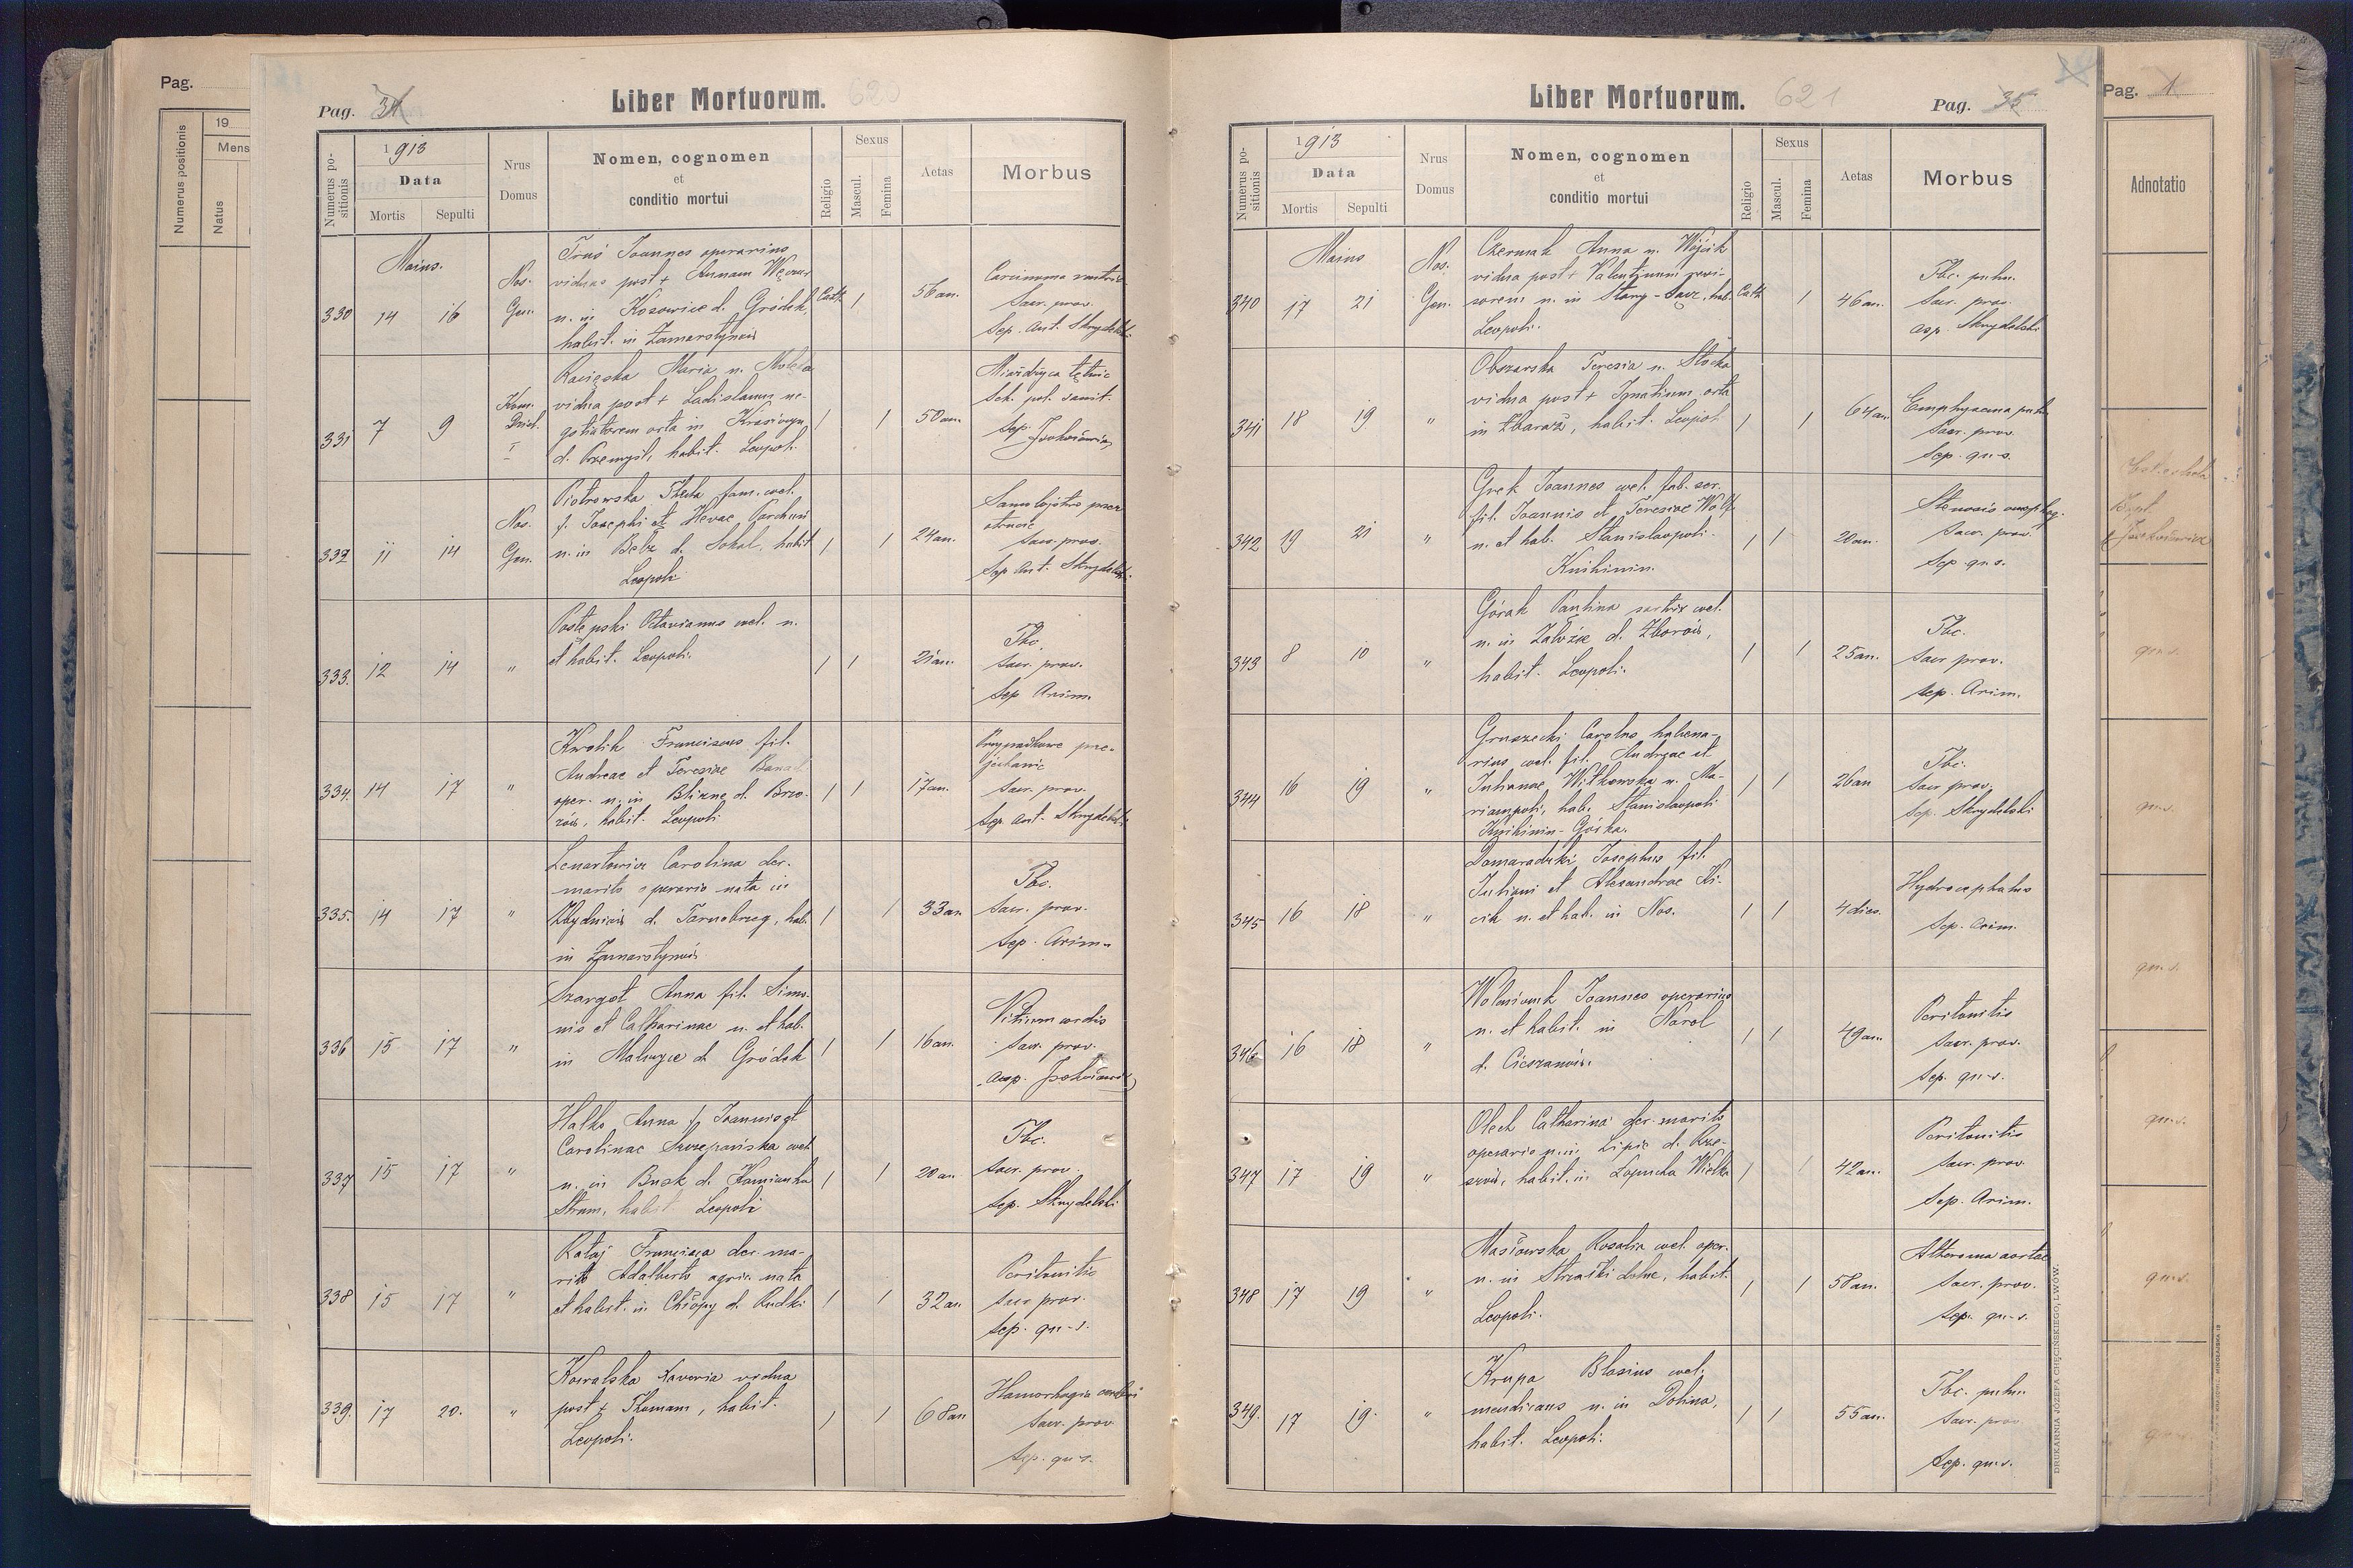 Pag.
Numerus positionis
19
Mens
Natus
Pag. 34
Liber Mortuorum. 620
Numerus positionis
1913
Data
Mortis
Sepulti
Nrus
Domus
Nomen, cognomen
et
conditio mortui
Religio
Sexus
Mascul.
Femina
Aetas
Morbus
Maius.
330 14 16
Nos.
Gen.
Truś Joannes operarius
viduus post + Annam
n. in Kosowice d. Gródek,
habit. in Zamarstynów
Cath. 1
56 an.
Carcinoma ventric
Sacr. prov.
Sep. Ant. Skrydelski
331 7 9
Kom.
Dziel.
I
Maria n.
vidua post + Ladislaum ne-
gotiatorem orta in
d. Przemyśl, habit. Leopoli
1 1
50 an.
Miażdżyca tętnic
Sch. pol. sanit.
Sep.
332 11 14
Nos.
Gen.
Piotrowska Thecla fam. cael.
f. Josephi et Hevae
n. in Belz d. Sokal, habit
Leopoli
1 1
24 an.
Samobójstwo przez
otrucie
Sacr. prov.
Sep. Ant. Skrydelski
333. 12 14 "
Postępski Octavianus cael. n.
et habit. Leopoli.
1 1
21 an.
Tbc.
Sacr. prov.
Sep. Arim.
334. 14 17 "
Krolik Franciscus fil.
Andreae et Teresiae
oper. n. in Blizne d. Brzo-
zów, habit. Leopoli
1 1
17 an.
Przypadkowe prze-
jechanie
Sacr. prov.
Sep. Ant. Skrydelski
335. 14 17 "
Lenartowicz Carolina der.
marito operario nata in
Zbydniów d. Tarnobrzeg, hab.
in Zamarstynów
1 1
33 an
Tbc.
Sacr. prov.
Sep. Arim.
336 15 17 "
Szargot Anna fil. Simo-
nis et Catharinae n. et hab.
in d. Gródek
1 1
16 an.
Vitium cordis
Sacr. prov.
asp.
337 15 17 "
Halko Anna f. Joannis et
Carolinae Szczepańska cael
n. in Busk d. Kamionka
Strum, habit Leopoli
1 1
20 an
Tbc.
Sacr. prov.
Sep. Skrydelski
338 15 17 "
Rataj Francisca der. ma-
rito Adalberto agric. nata
et habit. in Chłopy d. Rudki
1 1
32 an
Peritonitis
Sacr. prov.
Sep. qu. s.
339. 17 20. "
Kowalska Xaveria vidua
post + Thomam, habit.
Leopoli.
1 1
68 an
Hamorhagia cerebri
Sacr. prov.
Sep. qu. s.
Liber Mortuorum. 621
Pag. 35
Numerus positionis
1913
Data
Mortis
Sepulti
Nrus
Domus
Nomen, cognomen
et
conditio mortui
Religio
Sexus
Mascul.
Femina
Aetas
Morbus
Maius
340 17 21
Nos.
Gen.
Czermak Anna n. Wójcik
vidua post + Valentinum revi-
sorem n. in Stary-Sącz, hab.
Leopoli.
Cath 1
46 an.
Tbc. pulm.
Sacr. prov.
asp. Skrydelski
341 18 19 "
Obszarska Teresia n.
vidua post + Ignatium orta
in Zbaraż, habit. Leopol
1 1
64 an.
Emphysema pulm.
Sacr. prov.
Sep. qu. s.
342 19 21 "
Grek Joannes cael. fab. ser.
fil. Joannis et Teresiae Wolf
n. et hab. Stanislaopoli.
Knihinin.
1 1
20 an.
Stenosis oesophag.
Sacr. prov.
Sep. qu. s.
343 8 10 "
Górak Paulina sartrix cael.
n. in Załoźce d. Zborów,
habit. Leopoli.
1 1
25 an.
Tbc.
Sacr. prov.
Sep. Arim.
344 16 19 "
Gruszecki Carolus habena-
rius cael. fil. Andreae et
Julianae Witkowska n. Ma-
riampoli, hab. Stanislaopoli
Knihinin-Górka.
1 1
26 an
Tbc.
Sacr. prov.
Sep. Skrydelski
345 16 18 "
Domaradzki Josephus fil.
Juliani et Alexandrae Ki-
cik n. et hab. in Nos.
1 1
4 dies.
Hydrocephalus
Sep. Arim.
346 16 18 "
Joannes operarius
n. et habit. in Narol
d. Cieszanów.
1 1
49 an.
Peritonitis
Sacr. prov.
Sep. qu. s.
347 17 19 "
Olech Catharina der. marito
operario n. in Lipie d. Rze-
szów, habit. in Łopuszka Wielka
1 1
42 an.
Peritonitis
Sacr. prov.
Sep. Arim.
348 17 19 "
Masłowska Rosalia cael. oper.
n. in Strzałki dolne, habit.
Leopoli.
1 1
58 an.
Atheroma aortae
Sacr. prov.
Sep. qu. s.
349. 17 19. "
Krupa Blasius cael.
mendicans n. in Dolina,
habit. Leopoli.
1 1
55 an.
Tbc. pulm
Sacr. prov
Sep. qu. s.
DRUKARNIA JÓZEFA CHĘCIŃSKIEGO, LWÓW.
Pag. 1
Adnotatio
qu. s.
qu. s.
qu. s.
qu. s.
qu. s.
qu. s.